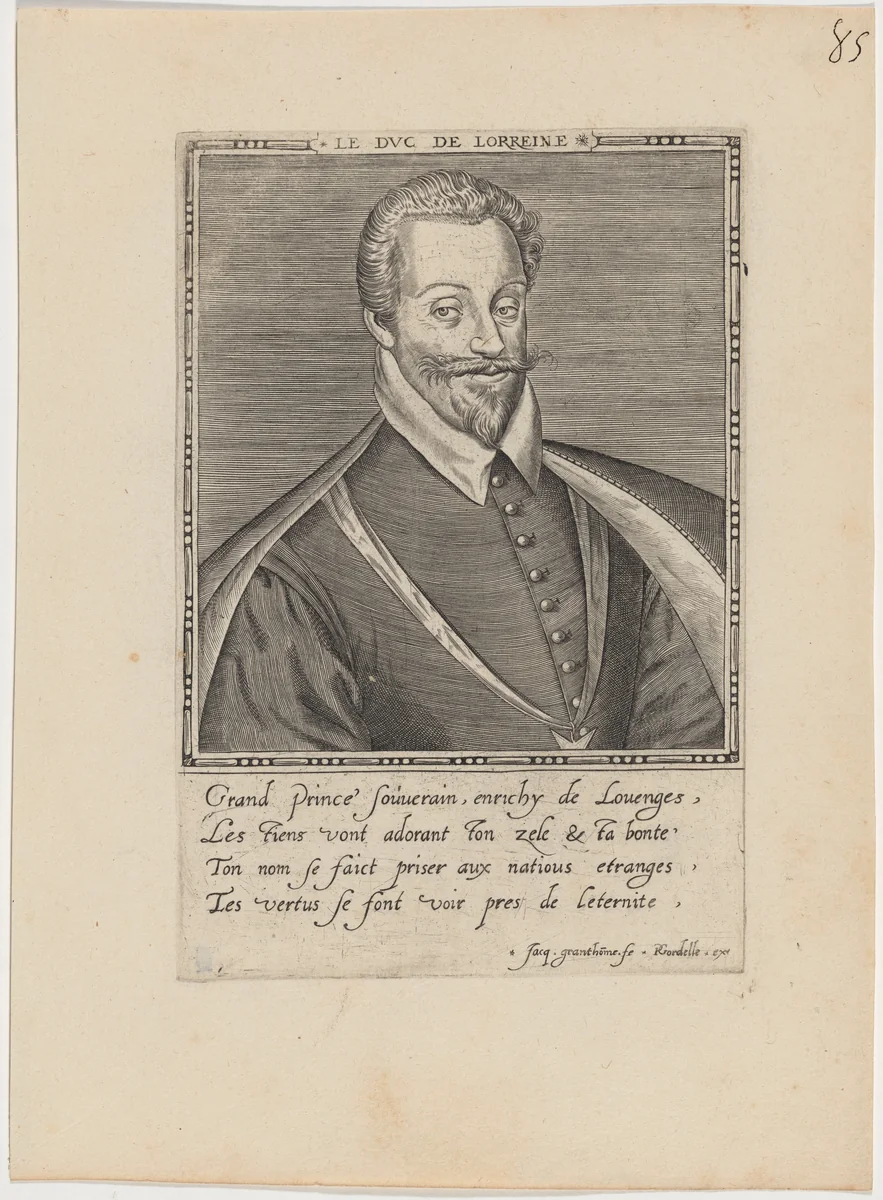 85
* LE DVC DE LORREINE *
Grand Prince soüverain, enrichy de Louenges,
Les Tiens vont adorant ton zele & ta bonte
Ton nom se faict priser aux natious etranges,
Tes vertus se font voir pres de leternite,
* Jacq. granthõme. fe * PGordelle. ex